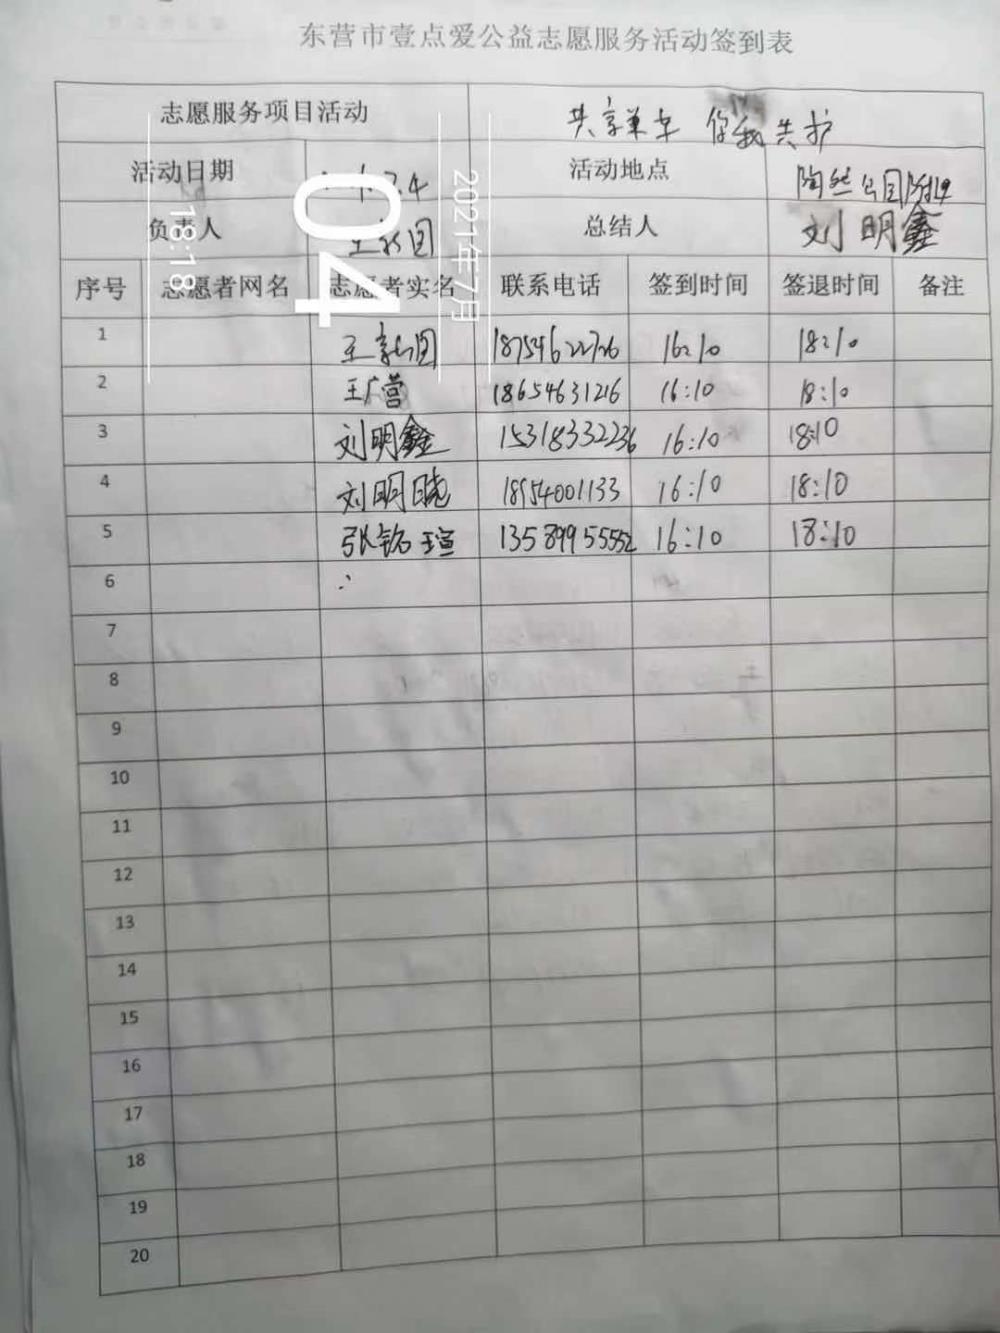 东营市壹点爱公益志愿服务活动签到表
志愿服务项目活动 共享单车 你我共护
活动日期 7.4 活动地点 陶然公园附近
负责人 王新国 总结人 刘明鑫
序号 志愿者网名 志愿者实名 联系电话 签到时间 签退时间 备注
1 王新国 18754622726 16:10 18:10
2 王广营 18654631216 16:10 18:10
3 刘明鑫 15318332236 16:10 18:10
4 刘明晓 18954001133 16:10 18:10
5 张铭瑄 13589955552 16:10 18:10
6
7
8
9
10
11
12
13
14
15
16
17
18
19
20
2021年7月
04
18:18